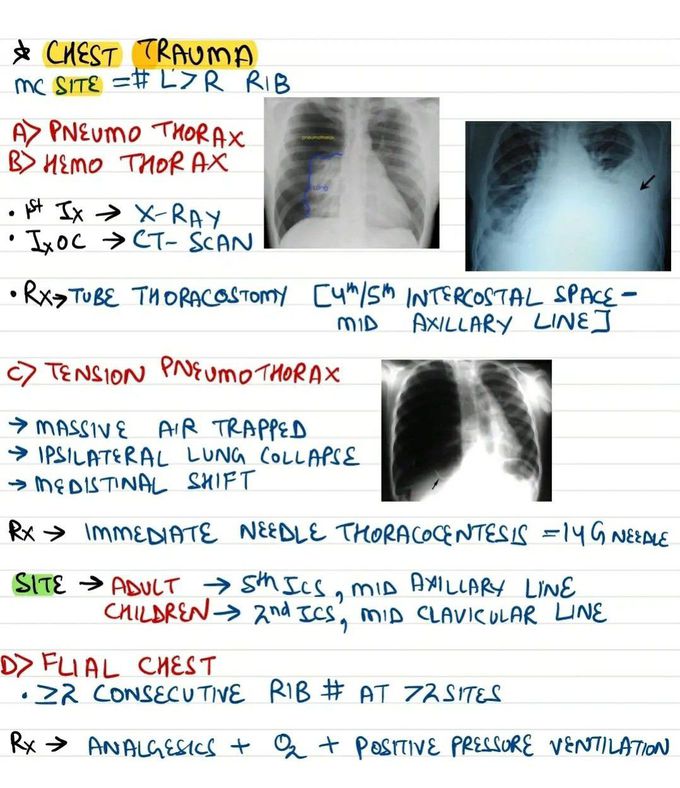 * CHEST TRAUMA
MC SITE = # L > R RIB
A> PNEUMO THORAX
B> HEMO THORAX
pneumothorax
lung
• 1st Ix → X-RAY
• IxOC → CT-SCAN
• Rx → TUBE THORACOSTOMY [4th/5th INTERCOSTAL SPACE -
MID AXILLARY LINE]
C> TENSION PNEUMOTHORAX
→ MASSIVE AIR TRAPPED
→ IPSILATERAL LUNG COLLAPSE
→ MEDISTINAL SHIFT
Rx → IMMEDIATE NEEDLE THORACOCENTESIS = 14 G NEEDLE
SITE → ADULT → 5th ICS, MID AXILLARY LINE
CHILDREN → 2nd ICS, MID CLAVICULAR LINE
D> FLIAL CHEST
• ≥2 CONSECUTIVE RIB # AT >2 SITES
Rx → ANALGESICS + O2 + POSITIVE PRESSURE VENTILATION